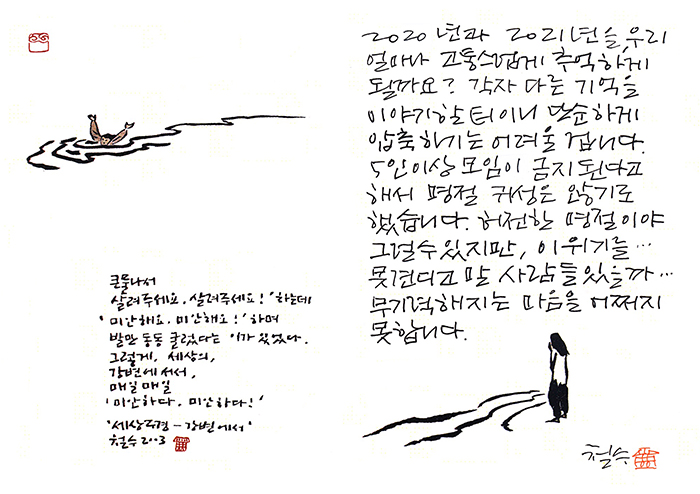 큰물나서
살려주세요. 살려주세요!' 하는데
'미안해요. 미안해요!' 하며
발만 동동 굴렀다는 이가 있었다.
그렇게, 세상의,
강변에 서서,
매일 매일
'미안하다. 미안하다!'
'세상풍경 - 강변에서'
철수 2003
2020년과 2021년을, 우리
얼마나 고통스럽게 추억하게
될까요? 각자 다른 기억을
이야기할 터이니 단순하게
압축하기는 어려울 겁니다.
5인이상 모임이 금지된다고
해서 명절 귀성은 않기로
했습니다. 허전한 명절이야
그럴수있지만, 이 위기를…
못견디고 말 사람들 있을까…
무기력해지는 마음을 어쩌지
못합니다.
철수